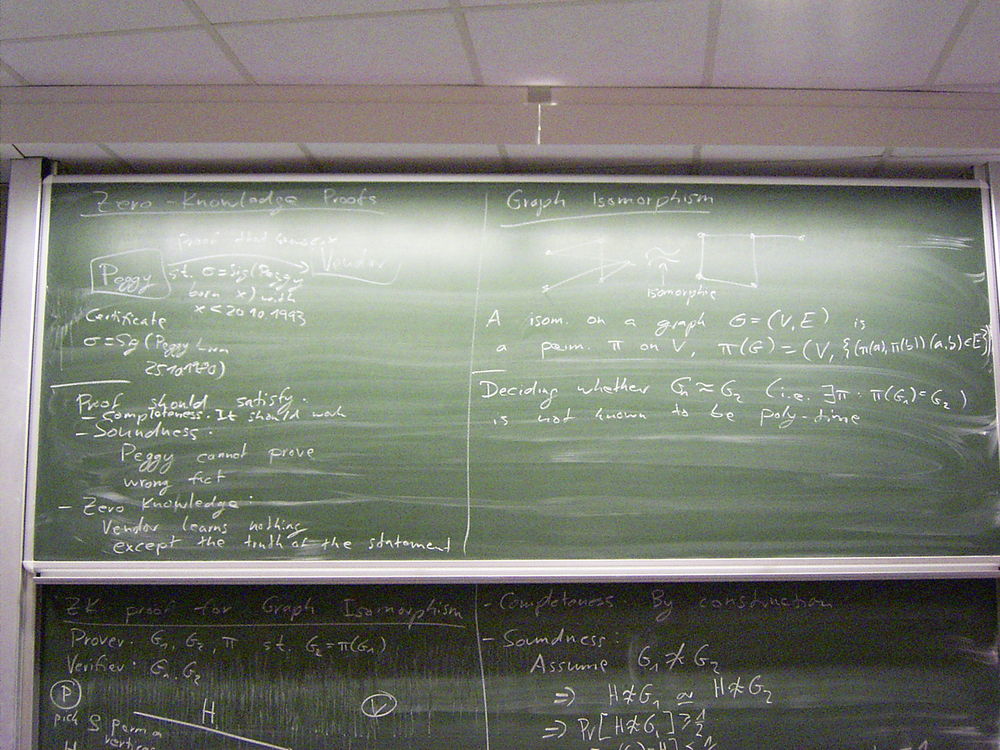 Zero-Knowledge Proofs
Proof that
Peggy
Vendor
st. σ=Sig(Peggy
born x) with
x < 20.10.1993
Certificate
σ=Sig(Peggy born
Proof should satisfy:
- Completeness: It should work
- Soundness:
Peggy cannot prove
wrong fact
- Zero Knowledge:
Vendor learns nothing
except the truth of the statement
Graph Isomorphism
isomorphic
A isom. on a graph G=(V,E) is
a perm. π on V, π(G)=(V,{(π(a),π(b))|(a,b)∈E})
Deciding whether G₁≈G₂ (i.e. ∃π. π(G₁)=G₂)
is not known to be poly-time
ZK proof for Graph Isomorphism
Prover: G₁, G₂, π st. G₂=π(G₁)
Verifier: G₁, G₂
P
V
pick ϱ perm on
H
vertices
- Completeness By construction
- Soundness:
Assume G₁≉G₂
⇒ H≉G₁ or H≉G₂
⇒ Pr[H≉Gᵢ]≥½